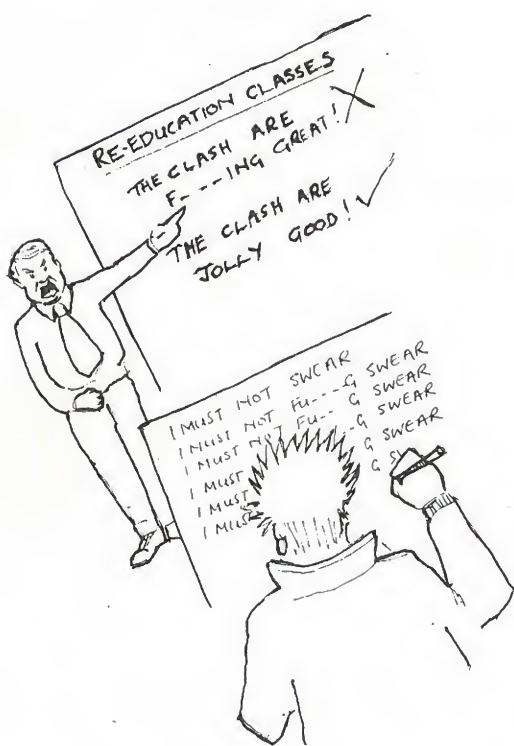 RE-EDUCATION CLASSES
THE CLASH ARE
F----ING GREAT! X
THE CLASH ARE
JOLLY GOOD! ✓
I MUST NOT SWEAR
I MUST NOT FU----G SWEAR
I MUST NOT FU-- -G SWEAR
I MUST G SWEAR
I MUST G SWEAR
I MUS G S